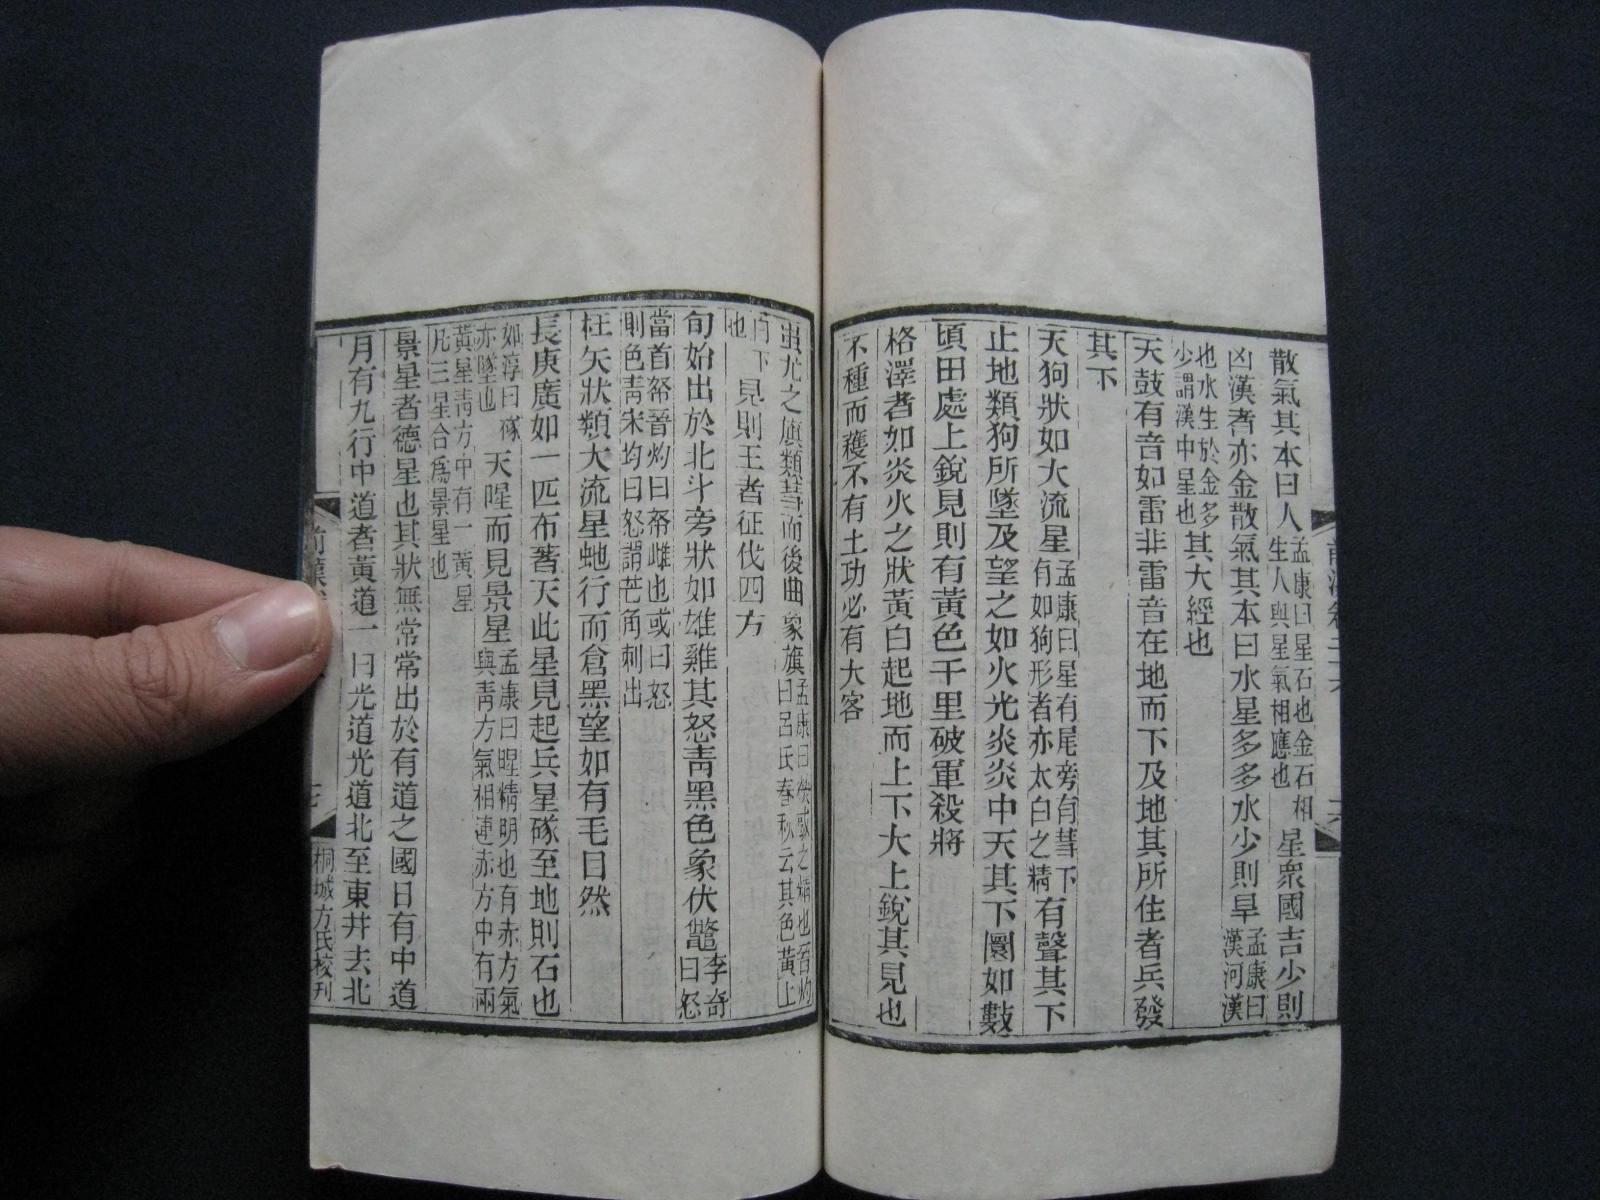 散氣其本曰人孟康曰星石也金石相生人與星氣相應也星衆國吉少則
凶漢者亦金散氣其本曰水星多多水少則旱孟康曰漢河漢
也水生於金多少謂漢中星也其大經也
天鼓有音如雷非雷音在地而下及地其所住者兵發
其下
天狗狀如大流星孟康曰星有尾旁有彗下有如狗形者亦太白之精有聲其下
止地類狗所墜及望之如火光炎炎中天其下圜如數
頃田處上銳見則有黃色千里破軍殺將
格澤者如炎火之狀黃白起地而上下大上銳其見也
不種而穫不有土功必有大客
蚩尤之旗類彗而後曲象旗孟康曰熒惑之精也晉灼曰呂氏春秋云其色黃上
白下也見則王者征伐四方
旬始出於北斗旁狀如雄雞其怒青黑色象伏鼈李奇曰怒
當首帑晉灼曰帑雌也或曰怒則色青宋均曰怒謂芒角刺出
枉矢狀類大流星虵行而倉黑望如有毛目然
長庚廣如一匹布著天此星見起兵星磙至地則石也
如淳曰磙亦墜也天暒而見景星孟康曰暒精明也有赤方氣與青方氣相連赤方中有兩
黃星青方中有一黃星凡三星合爲景星也
景星者德星也其狀無常常出於有道之國日有中道
月有九行中道者黃道一曰光道光道北至東井去北
桐城方氏校刊